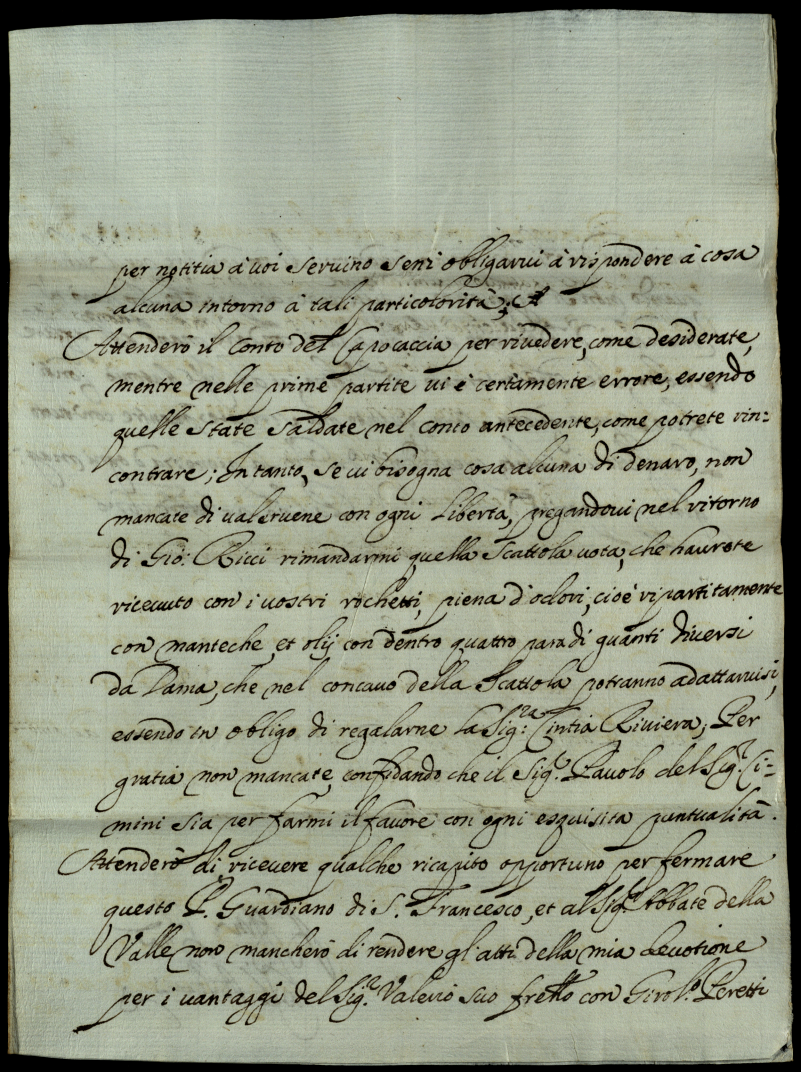 per notitia à voi servino senz'obligarvi à rispondere à cosa
alcuna intorno à tali particolorità;
Attenderò il conto del Capocaccia per rivedere, come desiderate,
mentre nelle prime partite vi è certamente errore, essendo
quelle state saldate nel conto antecedente, come potrete rin=
contrare; In tanto, se vi bisogna cosa alcuna di denaro, non
mancate di valervene con ogni libertà, pregandovi nel ritorno
di Gio: Ricci rimandarmi quella scattola vota, che haverete
ricevuto con i vostri rochetti, piena d'odori, cioè ripartitamente
con manteche, et olij con dentro quattro para di guanti diversi
da Dama, che nel concavo della scattola potranno adattarvisi,
essendo in obligo di regalarne la Sig:ra Cintia Riviera; Per
gratia non mancate, confidando che il Sig.r Pavolo del Sig.r Ci=
mini sia per farmi il favore con ogni esquisita puntualità.
Attenderò di ricevere qualche ricapito opportuno per fermare
questo P. Guardiano di S. Francesco, et al Sig.r Abbate della
Valle non mancherò di rendere gl'atti della mia devotione
per i vantaggi del Sig.r Valerio suo frello con Girol.o Peretti